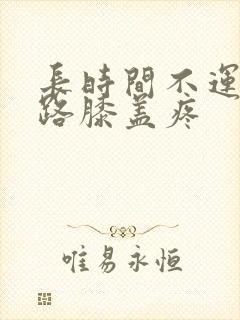 長時間不運
路膝盖疼
唯易永恒